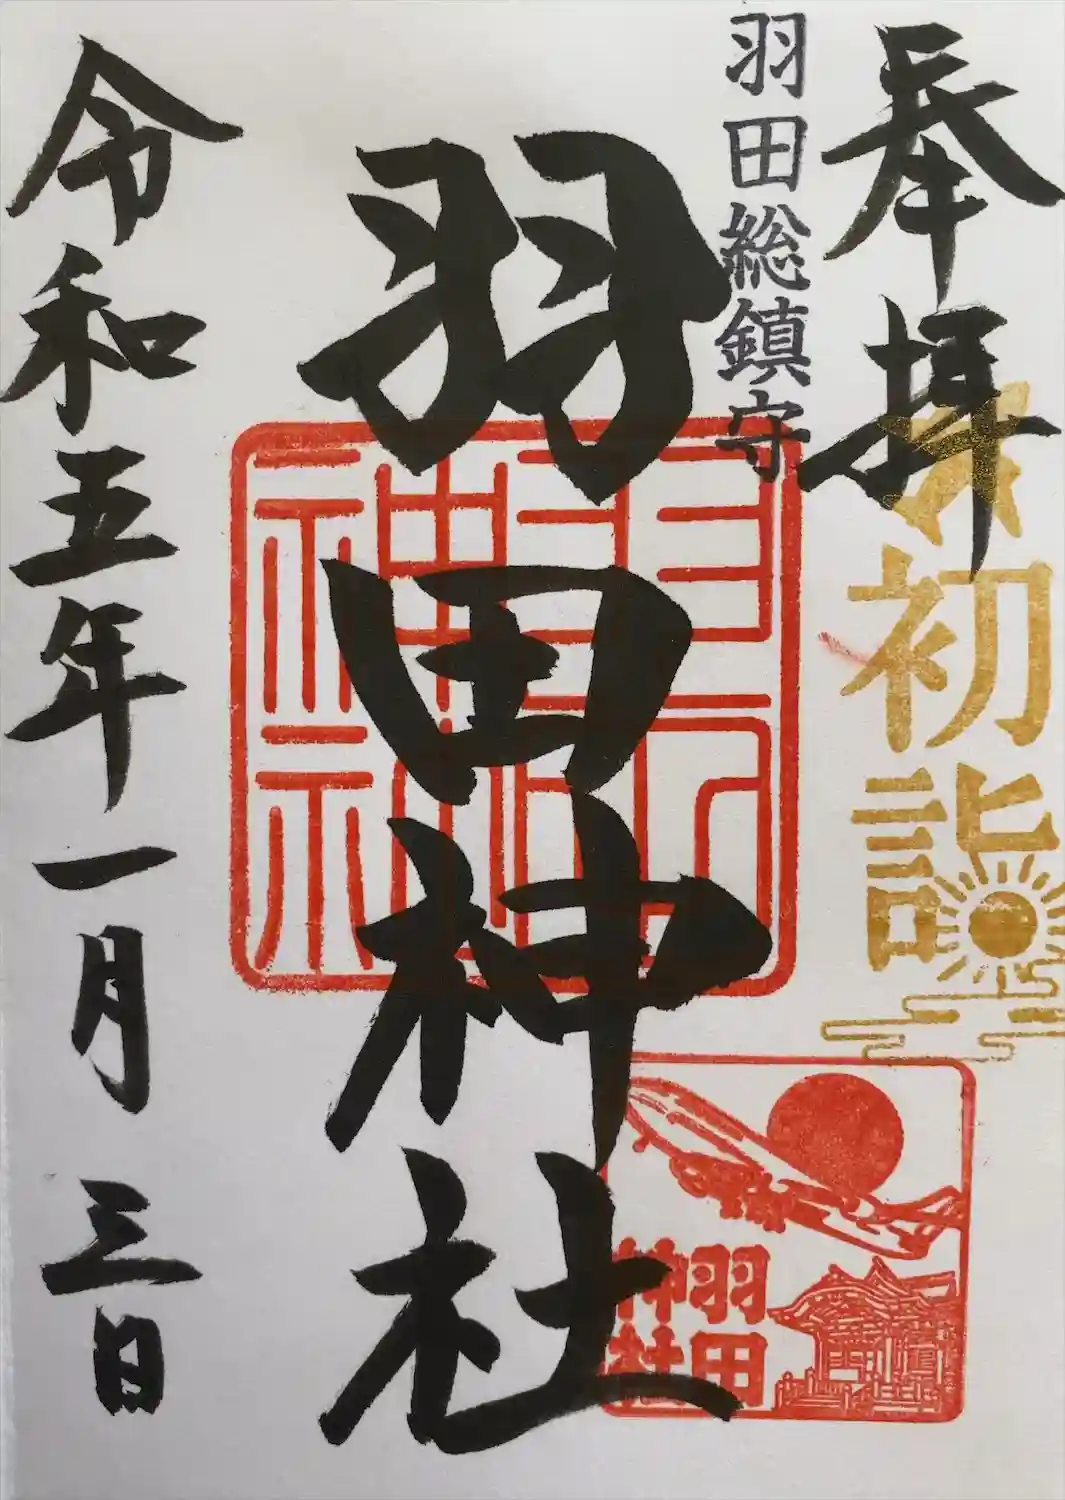 奉拝
初詣
羽田総鎮守
羽田神社
羽田神社
羽田
神社
令和五年一月三日